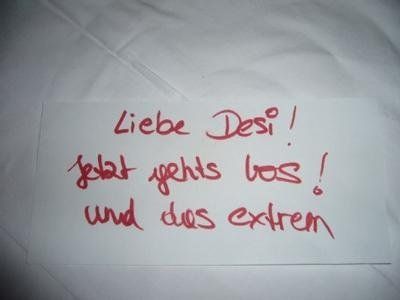 Liebe Desi!
Jetzt gehts los!
und das extrem